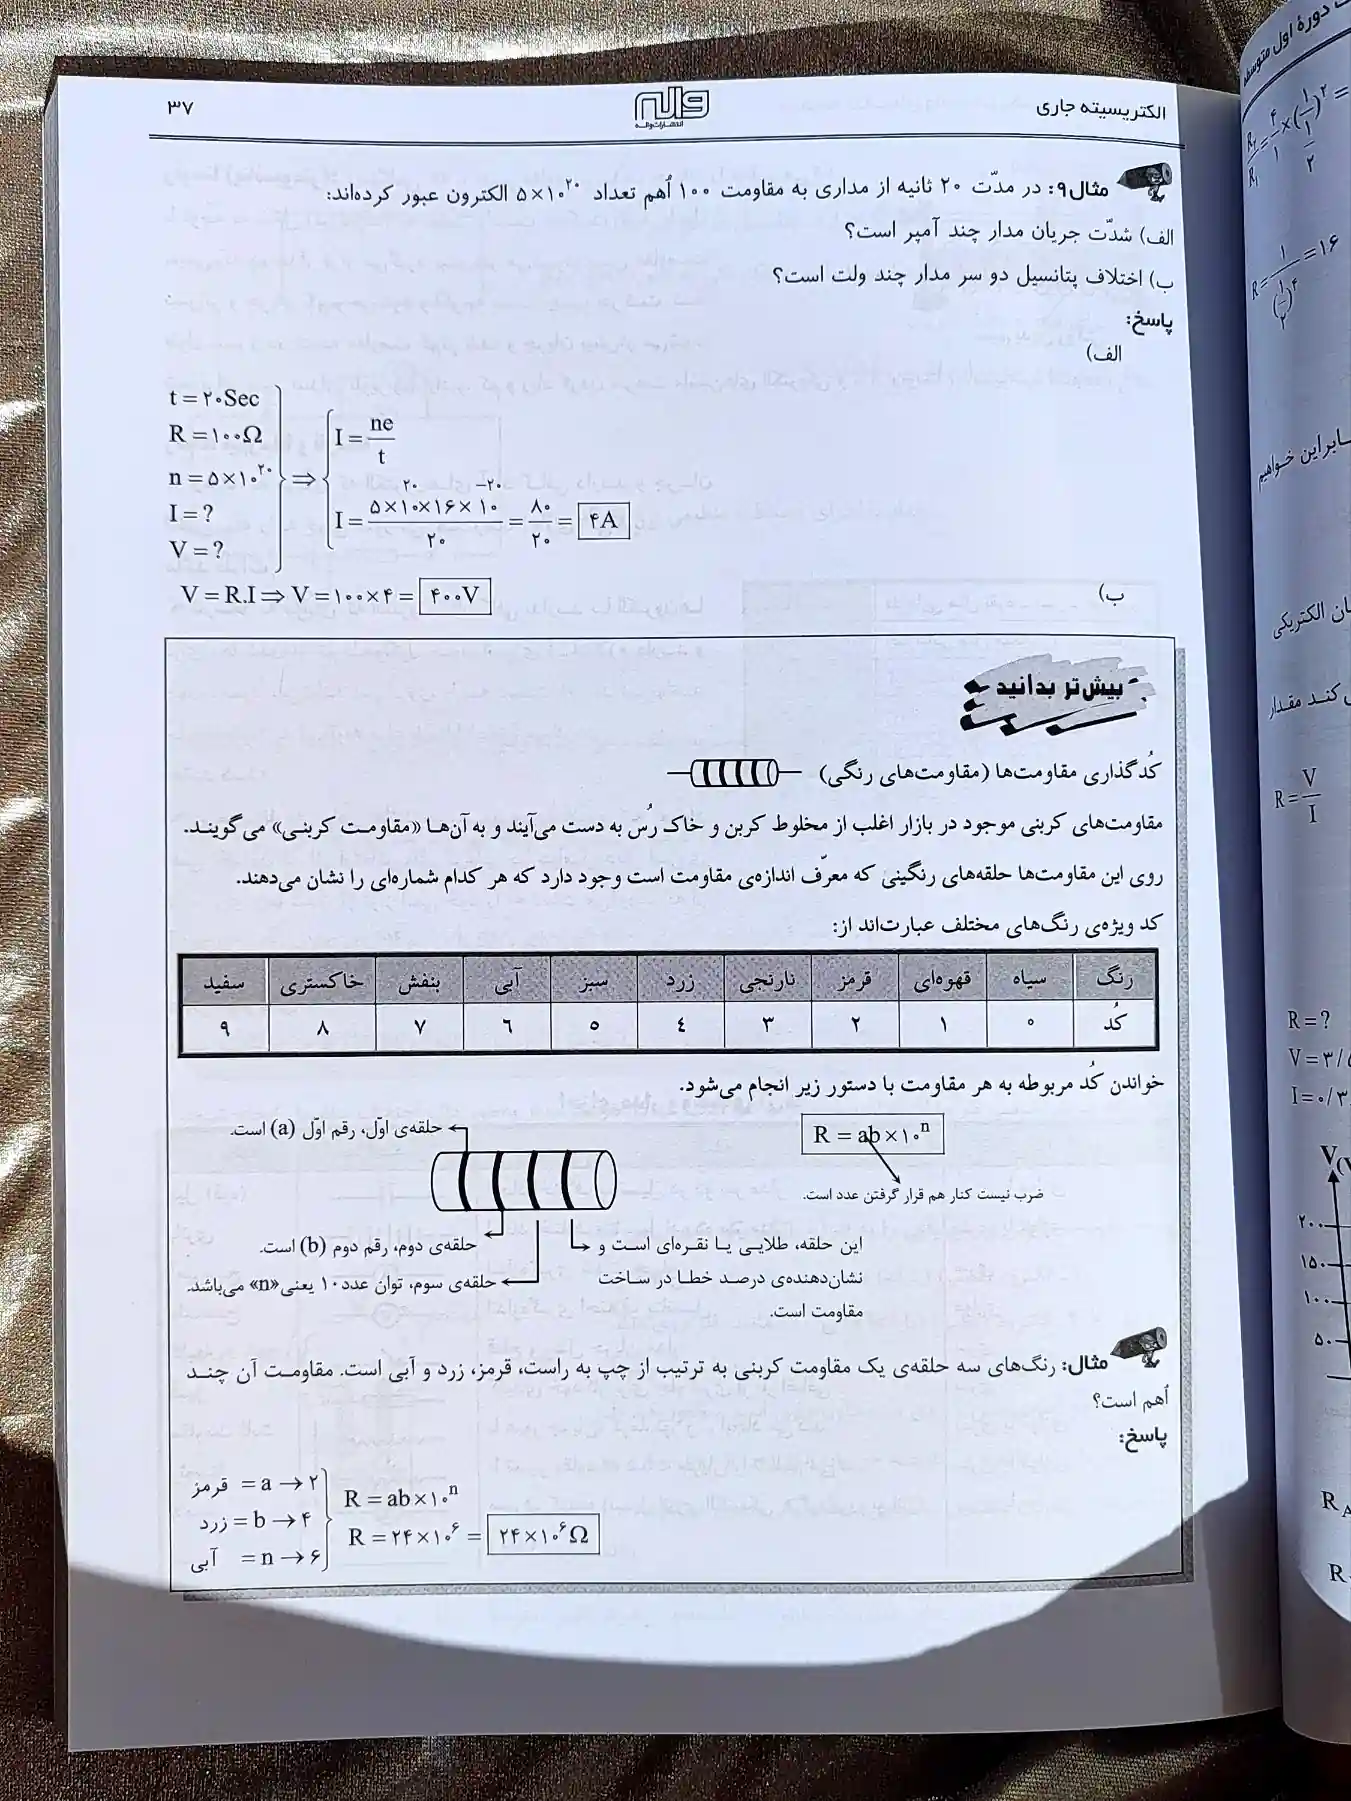 الکتریسیته جاری
واله
انتشارات واله
۳۷
مثال۹: در مدّت ۲۰ ثانیه از مداری به مقاومت ۱۰۰ اُهم تعداد ۵×۱۰^۲۰ الکترون عبور کرده‌اند:
الف) شدّت جریان مدار چند آمپر است؟
ب) اختلاف پتانسیل دو سر مدار چند ولت است؟
پاسخ:
الف)
t = ۲۰Sec
R = ۱۰۰Ω
n = ۵×۱۰^۲۰
I = ?
V = ?
⇒
I = ne/t
I = ۵×۱۰^۲۰×۱۶×۱۰^-۲۰/۲۰ = ۸۰/۲۰ = ۴A
ب)
V = R.I ⇒ V = ۱۰۰×۴ = ۴۰۰V
بیش‌تر بدانید
کُدگذاری مقاومت‌ها (مقاومت‌های رنگی)
مقاومت‌های کربنی موجود در بازار اغلب از مخلوط کربن و خاک رُس به دست می‌آیند و به آن‌هـا «مقاومـت کربنـی» می‌گوینـد.
روی این مقاومت‌ها حلقه‌های رنگینی که معرّف اندازه‌ی مقاومت است وجود دارد که هر کدام شماره‌ای را نشان می‌دهند.
کد ویژه‌ی رنگ‌های مختلف عبارت‌اند از:
رنگ سیاه قهوه‌ای قرمز نارنجی زرد سبز آبی بنفش خاکستری سفید
کُد ۰ ۱ ۲ ۳ ٤ ٥ ٦ ۷ ۸ ۹
خواندن کُد مربوطه به هر مقاومت با دستور زیر انجام می‌شود.
R = ab×۱۰^n
ضرب نیست کنار هم قرار گرفتن عدد است.
حلقه‌ی اوّل، رقم اوّل (a) است.
حلقه‌ی دوم، رقم دوم (b) است.
حلقه‌ی سوم، توان عدد۱۰ یعنی «n» می‌باشد.
این حلقه، طلایی یـا نقـره‌ای اسـت و
نشان‌دهنده‌ی درصـد خطـا در سـاخت
مقاومت است.
مثال: رنگ‌های سه حلقه‌ی یک مقاومت کربنی به ترتیب از چپ به راست، قرمز، زرد و آبی است. مقاومـت آن چنـد
اُهم است؟
پاسخ:
قرمز = a → ۲
زرد = b → ۴
آبی = n → ۶
R = ab×۱۰^n
R = ۲۴×۱۰^۶ = ۲۴×۱۰^۶Ω
دورهٔ اول متوسطه
R۲/R۱ = ۴/۱ × (۱/۱/۲)^۲ =
R = ۱/(۱/۲)^۴ = ۱۶
خـواهیم
الکتریکی
کنـد مقـدار
R = V/I
R = ?
V = ۳/
I = ۰/۳
V(V
۲۰۰
۱۵۰
۱۰۰
۵۰
R A
R